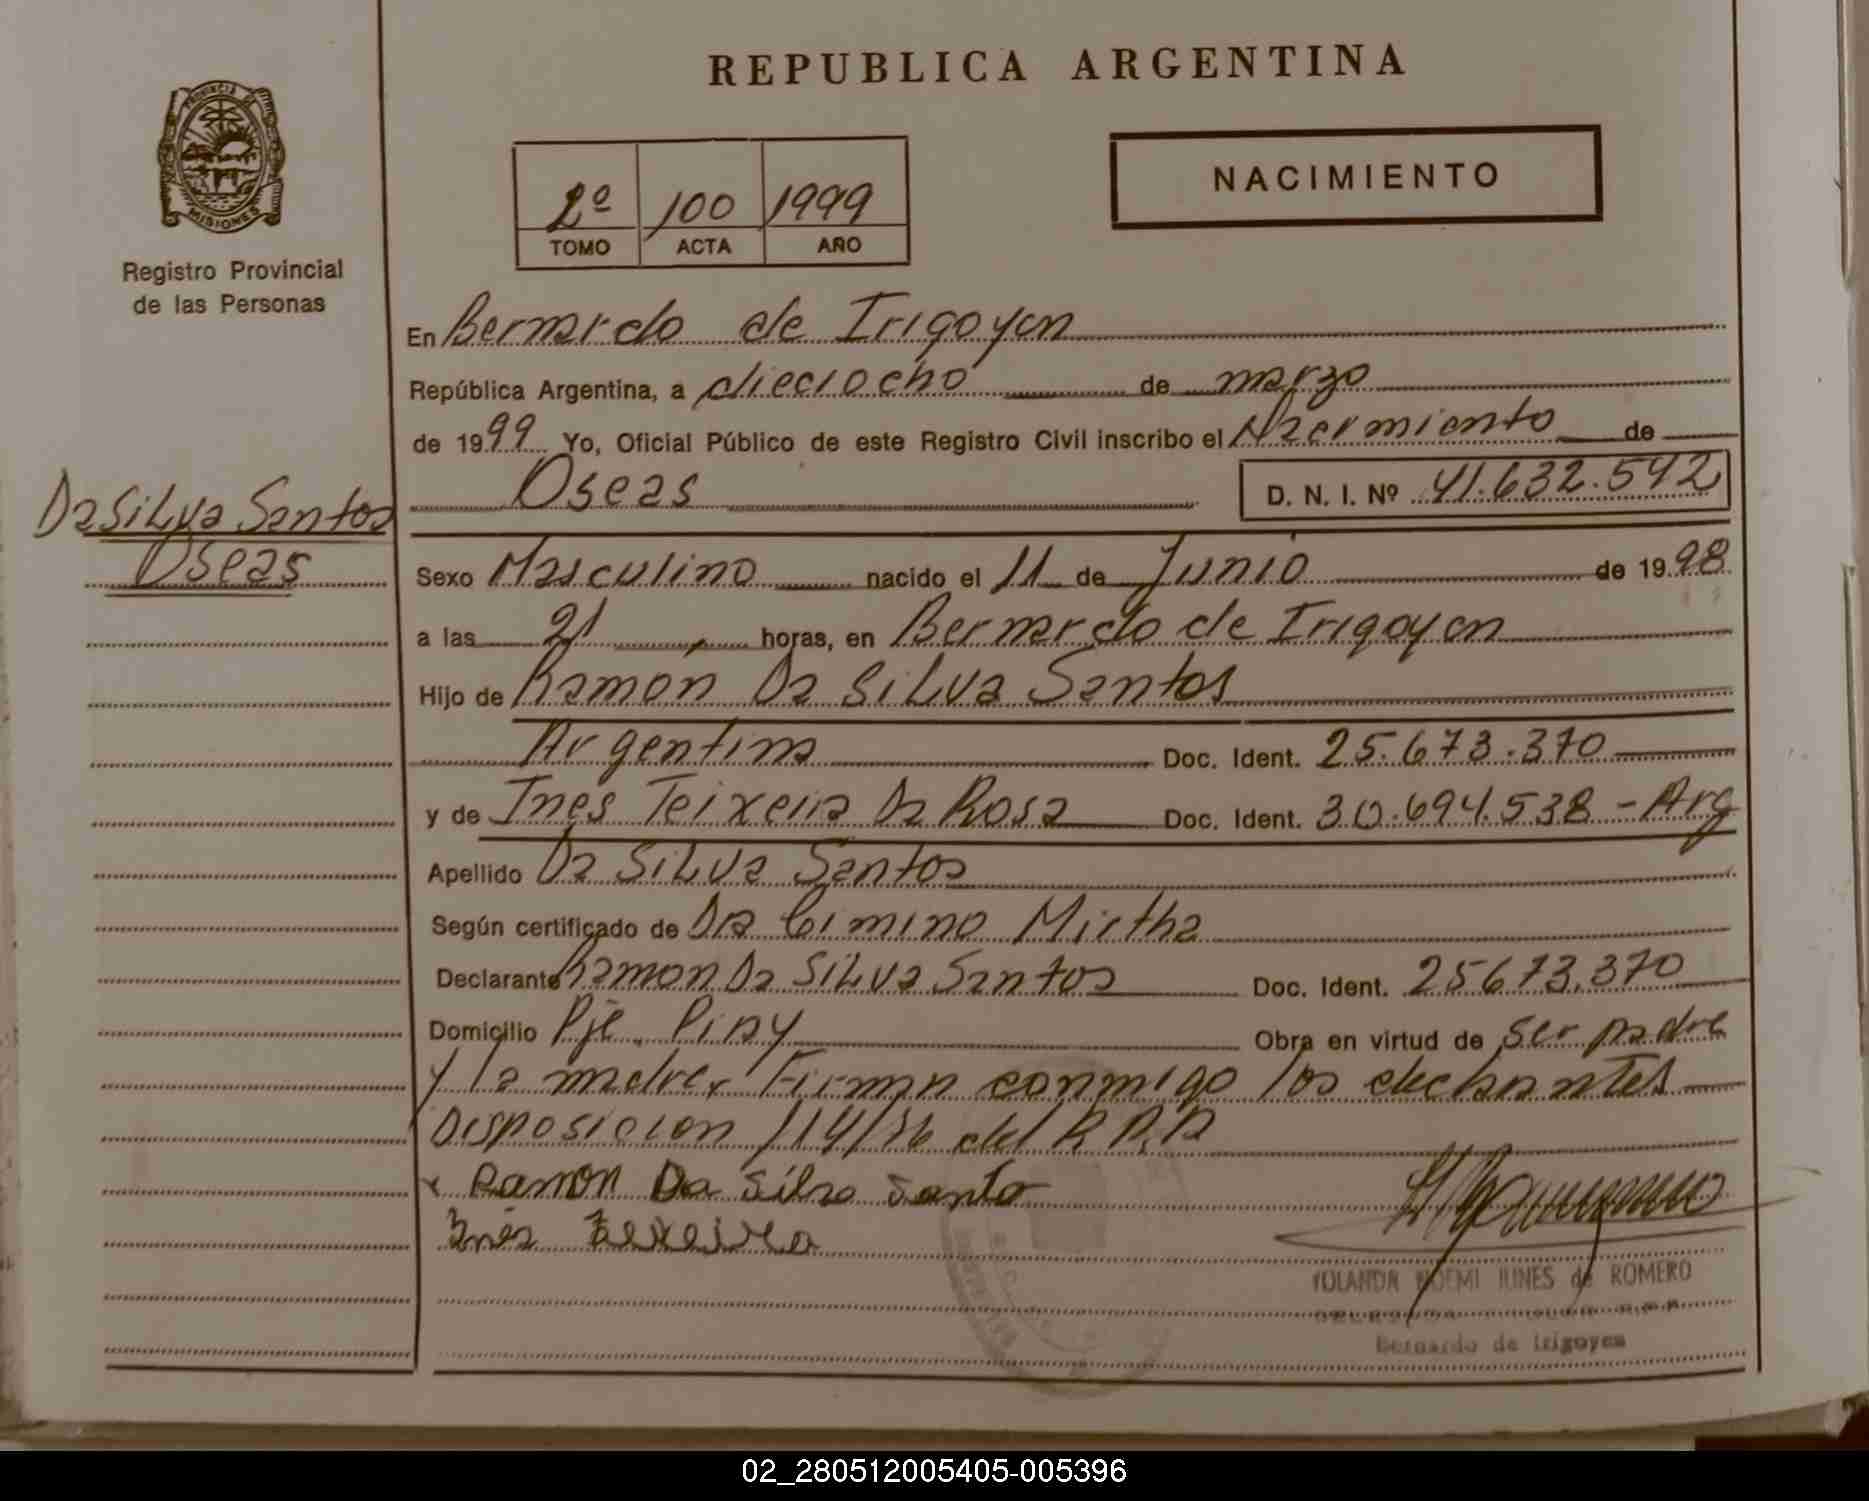 REPUBLICA ARGENTINA
PROVINCIA DE
MISIONES
Registro Provincial
de las Personas
2º 100 1999
TOMO ACTA AÑO
NACIMIENTO
En Bernardo de Irigoyen
República Argentina, a dieciocho de marzo
de 1999 Yo, Oficial Público de este Registro Civil inscribo el Nacimiento de
Oseas D. N. I. Nº 41.632.542
Da Silva Santos
Oseas
Sexo Masculino nacido el 11 de Junio de 1998
a las 21 horas, en Bernardo de Irigoyen
Hijo de Ramón Da Silva Santos
Argentina Doc. Ident. 25.673.370
y de Inés Teixeira Da Rosa Doc. Ident. 30.694.538 - Arg
Apellido Da Silva Santos
Según certificado de Dra Cimino Mirtha
Declarante Ramon Da Silva Santos Doc. Ident. 25673.370
Domicilio Pje. Piray Obra en virtud de ser padre
y la madre Firman conmigo los declarantes
Disposicion 114/86 del R.P.P
x Ramon Da Silva Santo
Inés Texeira
YOLANDA NOEMI JUNES de ROMERO
Bernardo de Irigoyen
02_280512005405-005396